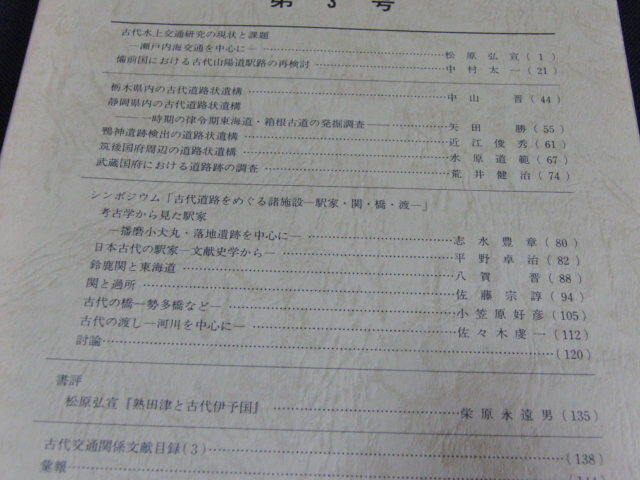 第3号
古代水上交通研究の現状と課題
―瀬戸内海交通を中心に― 松原弘宣(1)
備前国における古代山陽道駅路の再検討 中村太一(21)
栃木県内の古代道路状遺構 中山 晋(44)
静岡県内の古代道路状遺構
――時期の律令期東海道・箱根古道の発掘調査― 矢田 勝(55)
鴨神遺跡検出の道路状遺構 近江俊秀(61)
筑後国府周辺の道路状遺構 水原道範(67)
武蔵国府における道路跡の調査 荒井健治(74)
シンポジウム「古代道路をめぐる諸施設―駅家・関・橋・渡―」
考古学から見た駅家
―播磨小犬丸・落地遺跡を中心に― 志水豊章(80)
日本古代の駅家―文献史学から― 平野卓治(82)
鈴鹿関と東海道 八賀 晋(88)
関と過所 佐藤宗諄(94)
古代の橋―勢多橋など― 小笠原好彦(105)
古代の渡し―河川を中心に― 佐々木虔一(112)
討論 (120)
書評
松原弘宣『熟田津と古代伊予国』 栄原永遠男(135)
古代交通関係文献目録(3) (138)
彙報